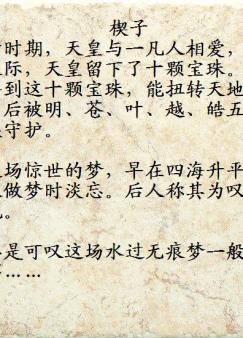 楔子
时期，天皇与一凡人相爱，
际，天皇留下了十颗宝珠。
到这十颗宝珠，能扭转天地
后被明、苍、叶、越、皓五
守护。
场惊世的梦，早在四海升平
做梦时淡忘。后人称其为叹
是可叹这场水过无痕梦一般
……